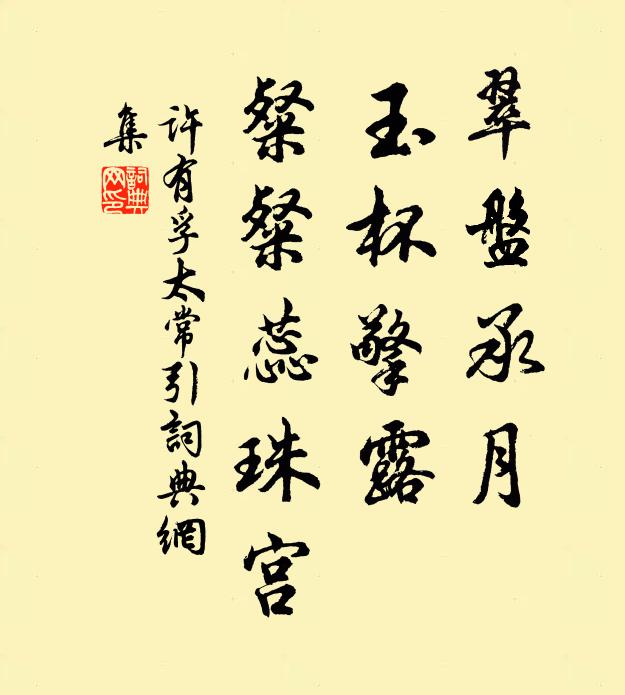 翠盤承月
玉杯擎露
粲粲蕊珠宫
许有孚太常引詞典網
集
詞典
网印